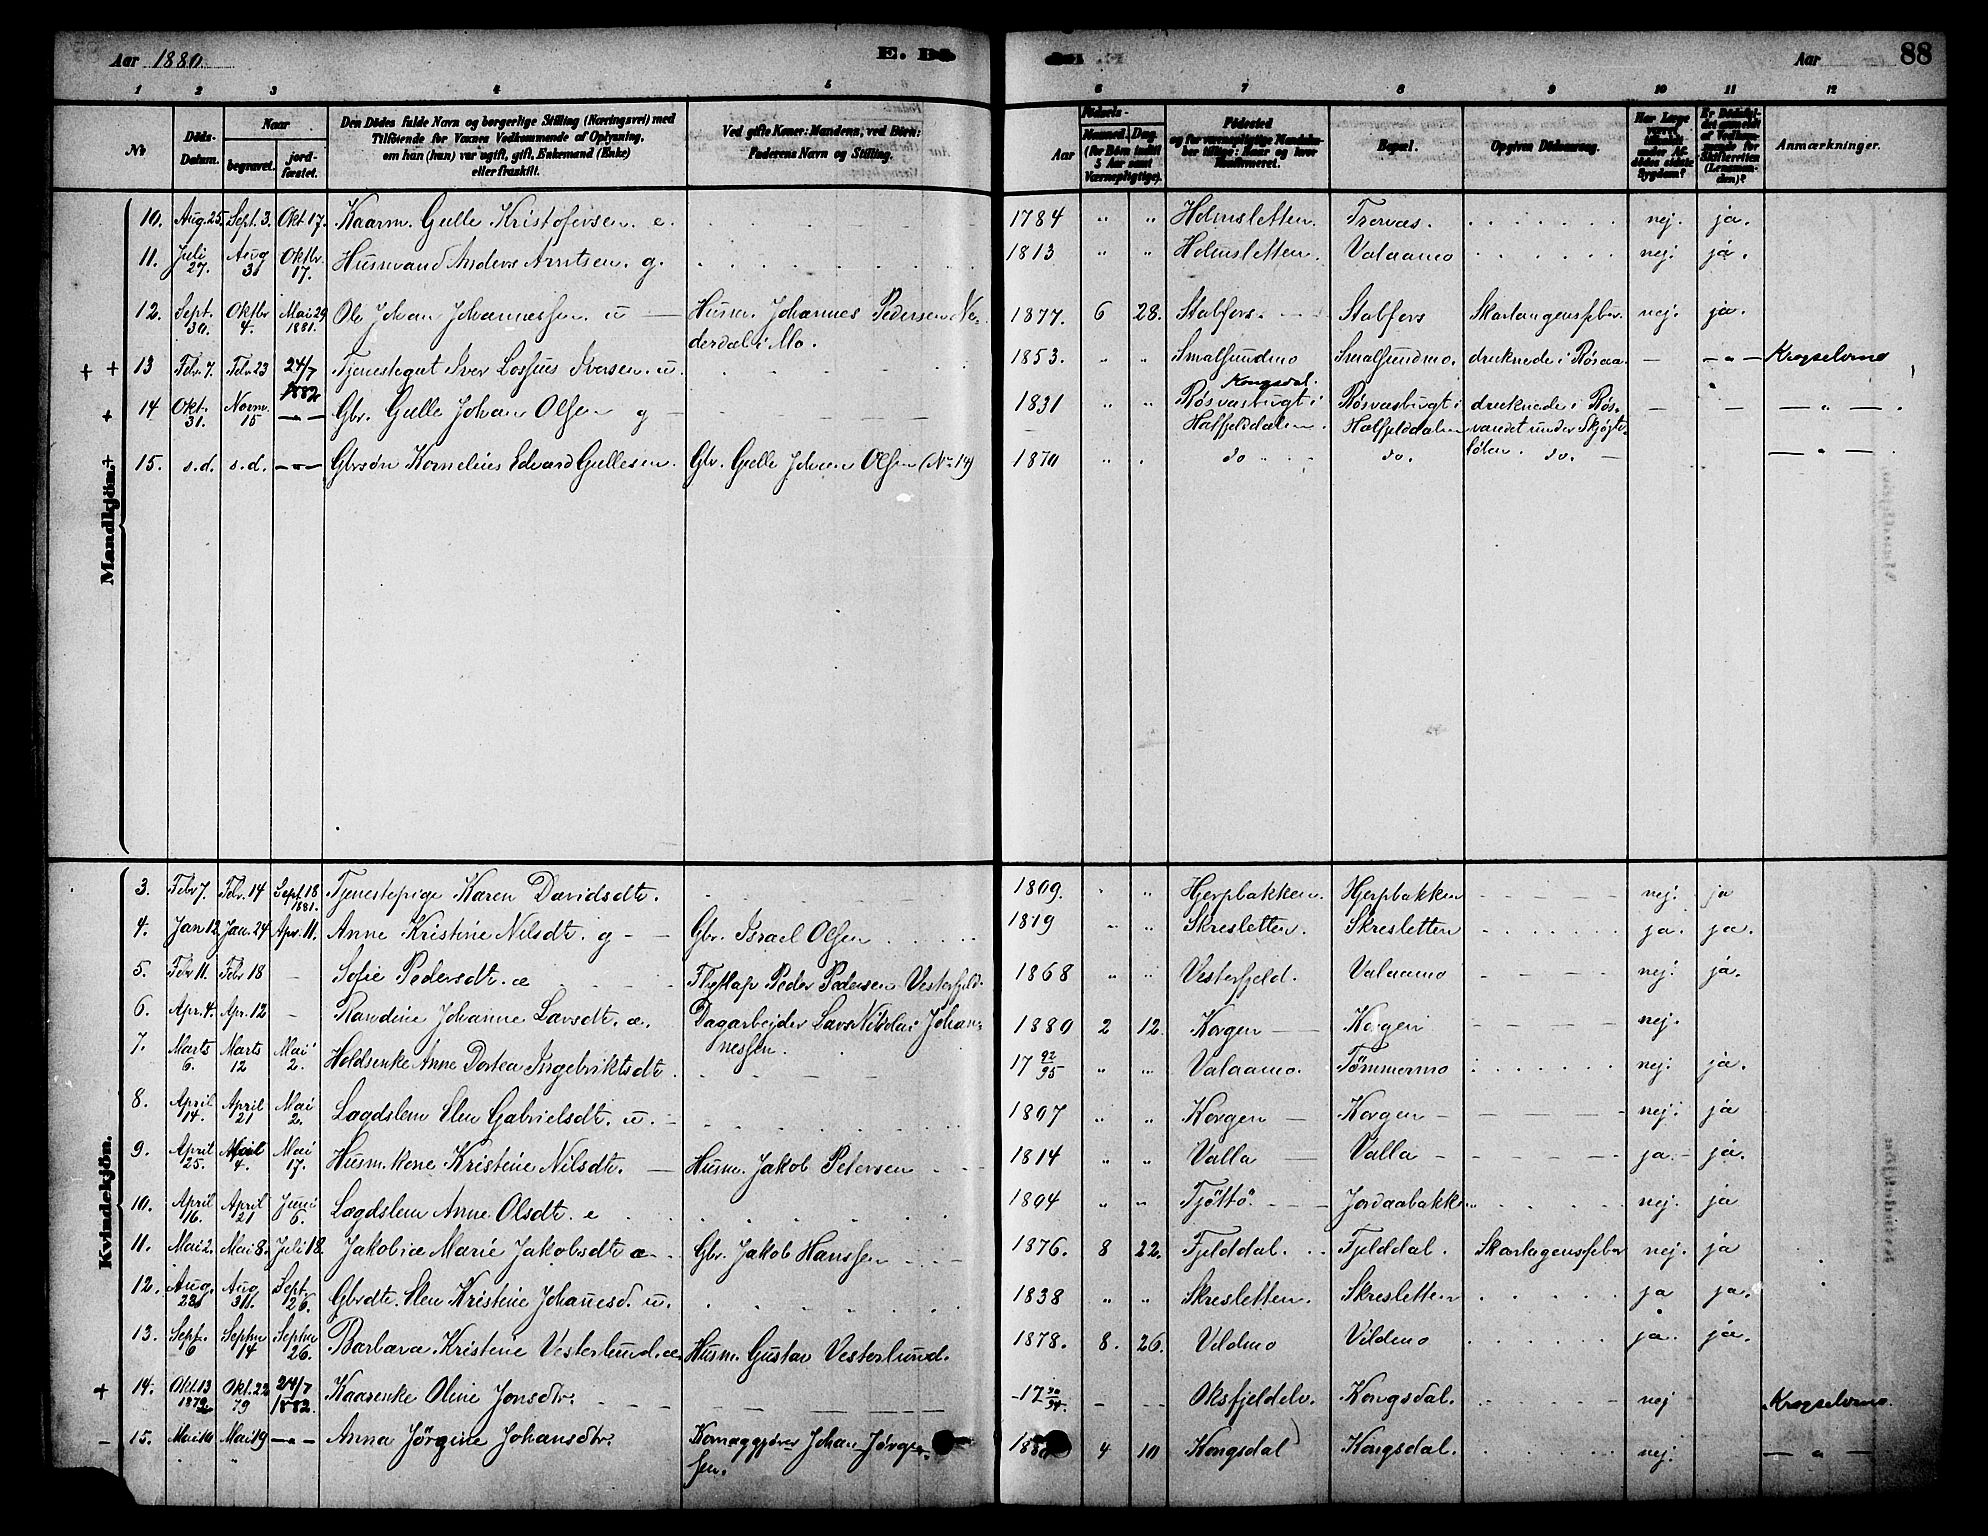 Aar 1880. E. Dö Aar 88
1 2 3 4 5 6 7 8 9 10 11 12
No Döds-Datum. Naar begravet. jord-fæstet. Den Dödes fulde Navn og borgerlige Stilling (Næringsvei) med Tilföiende for Voxnes Vedkommende af Oplysning, om han (hun) var ugift, gift, Enkemand (Enke) eller fraskilt. Ved gifte Koner: Mandens, ved Börn: Faderens Navn og Stilling. Aar Födsels- Maaned. Dag. (for Börn indtil 5 Aar samt Værnepligtige). Födested og for værnepligtige Mandskaber tillige: Naar og hvor Konfirmeret. Bopæl. Opgiven Dödsaarsag. Har Læge været sögt under Afdödes sidste Sygdom? Er Dödsfaldet anmeldt af Vedkommende for Skifteretten (Lensmanden)? Anmærkninger.
Mandkjön.
10. Aug. 25. Sept. 3. Okt 17. Kaarm. Gulle Kristofersen. e. 1784 " " Holmsletten Trovas. nej. ja.
11. Juli 27. Aug 31 Oktbr. 17. Husmand Anders Arntsen. g. 1813 " " Holmsletten. Valaamo nej. ja.
12. Sept. 30. Oktbr 4. Mai 29 1881. Ole Johan Johannessen. u — Husm. Johannes Pedersen Ne-
derdal i Mo. 1877. 6 28. Stabfors. Stabfors Skarlagensfeber nej. ja.
+ + 13 Febr. 7. Febr. 23 24/7 1882 Tjenestegut Iver Losius Iversen. u. 1853. " " Smalsundmo Smalsundmo. druknede i Røsaa. — — " — Krogselvmo
+ 14 Okt. 31. Novm. 15 — " — Gbr. Gulle Johan Olsen g — 1831 " " Kongsdal. Røsvasbugt i Hatfjelddalen. Røsvasbugt i Hatfjelddalen druknede i Røs-
vandet under Skjøite-
löben. — — — " —
+ 15. s.d. s.d. — " — Gbrsøn Kornelius Edvard Gullesen. Gbr. Gulle Johan Olsen (No 14) 1870 " " do do. do. — — " —
Kvindekjön.
3. Febr 7. Febr. 14 Sept. 18 1881. Tjenestepige Karen Davidsdt. 1809. " " Hjerpbakken. Hjerpbakken nej. ja
4. Jan 12 Jan. 24 Apr. 11. Anne Kristine Nilsdt. g — Gbr. Israel Olsen 1819 " " Skresletten. Skresletten ja. ja.
5. Febr 11. Febr 18 — Sofie Pedersdt. æ Flytlap Peder Pedersen Vesterfjeld. 1868 " " Vesterfjeld. Valaamo nej. ja.
6. Apr. 4. Apr. 12 — Randine Johanne Larsdt. æ. Dagarbejder Lars Nikolai Johan-
nessen. 1880 2 12. Korgen — Korgen nej.
7. Marts 6. Marts 12 Mai 2. Holdsenke Anne Dortea Ingebriktsdt. 17 92/95 " " Valaamo. Tømmermo nej. ja.
8. April 14. April 21 Mai 2. Lægdslem Elen Gabrielsdt. u. — 1807 " " Korgen — Korgen — nej. ja
9. April 25. Mai 4. Mai 17. Husm.kone Kristine Nilsdt. — Husm. Jakob Petersen 1814 " " Valla — Valla — ja. ja.
10. April 16. April 21 Juni 6. Lægdslem Anne Olsdt. e 1804 " " Tjöttö. Jordaabakken nej. ja
11. Mai 2. Mai 8. Juli 18. Jakobine Marie Jakobsdt æ. Gbr. Jakob Hanssen 1876. 8 22. Fjelddal. Fjelddal. Skarlagensfeber nej. ja
12. Aug. 23. Aug 31. Sept. 26. Gbrdt. Elen Kristine Johanesd. u. 1838 " " Skresletten. Skresletten ja ja.
13. Sept. 6 Septbr 14 Septbr 26. Barbara Kristine Vesterlund. æ. Husm. Gustav Vesterlund. 1878. 8. 26. Vildmo Vildmo ja. ja.
+ 14. Okt. 13 1879 Okt. 22 79 24/7 1882. Kaarenke Oline Jonsdtr. 17 90/94. — — Oksfjeldelv. Kongsdal. nej Krogselvmo.
— 15. Mai 10 Mai 19 — " — Anna Jörgine Johansdtr. Komaggjører Johan Jörgen-
sen. 1880 4 10 Kongsdal Kongsdal. nej. — " —